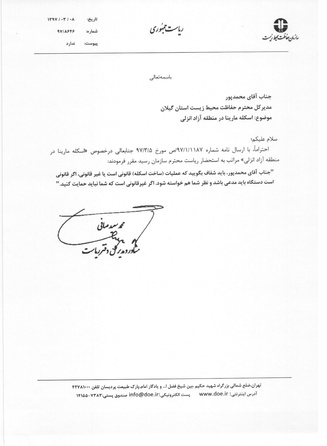 سازمان حفاظت محیط زیست
ریاست جمهوری
تاریخ: ۱۳۹۷/۰۳/۰۸
شماره: ۹۷/۸۶۴۶
پیوست: ندارد
باسمه‌تعالی
جناب آقای محمدپور
مدیرکل محترم حفاظت محیط زیست استان گیلان
موضوع: اسکله مارینا در منطقه آزاد انزلی
سلام علیکم؛
احتراماً، با ارسال نامه شماره ۹۷/۱/۱۱۸۷/ص مورخ ۹۷/۳/۵ جنابعالی درخصوص «اسکله مارینا در
منطقه آزاد انزلی» مراتب به استحضار ریاست محترم سازمان رسید، مقرر فرمودند:
"جناب آقای محمدپور، باید شفاف بگویید که عملیات (ساخت اسکله) قانونی است یا غیر قانونی، اگر قانونی
است دستگاه باید مدعی باشد و نظر شما هم خواسته شود. اگر غیرقانونی است که شما نباید حمایت کنید."
مشاور و مدیرکل دفتر ریاست
تهران،ضلع شمالی بزرگراه شهید حکیم، بین شیخ فضل ا... و یادگار امام،پارک طبیعت پردیسان تلفن: ۴۲۷۸۱۰۰۰
آدرس اینترنتی: www.doe.ir پست الکترونیکی: info@doe.ir صندوق پستی: ۷۳۸۳-۱۴۱۵۵